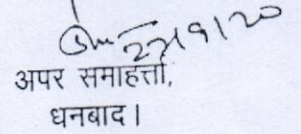 27/9/20
अपर समाहर्त्ता,
धनबाद।